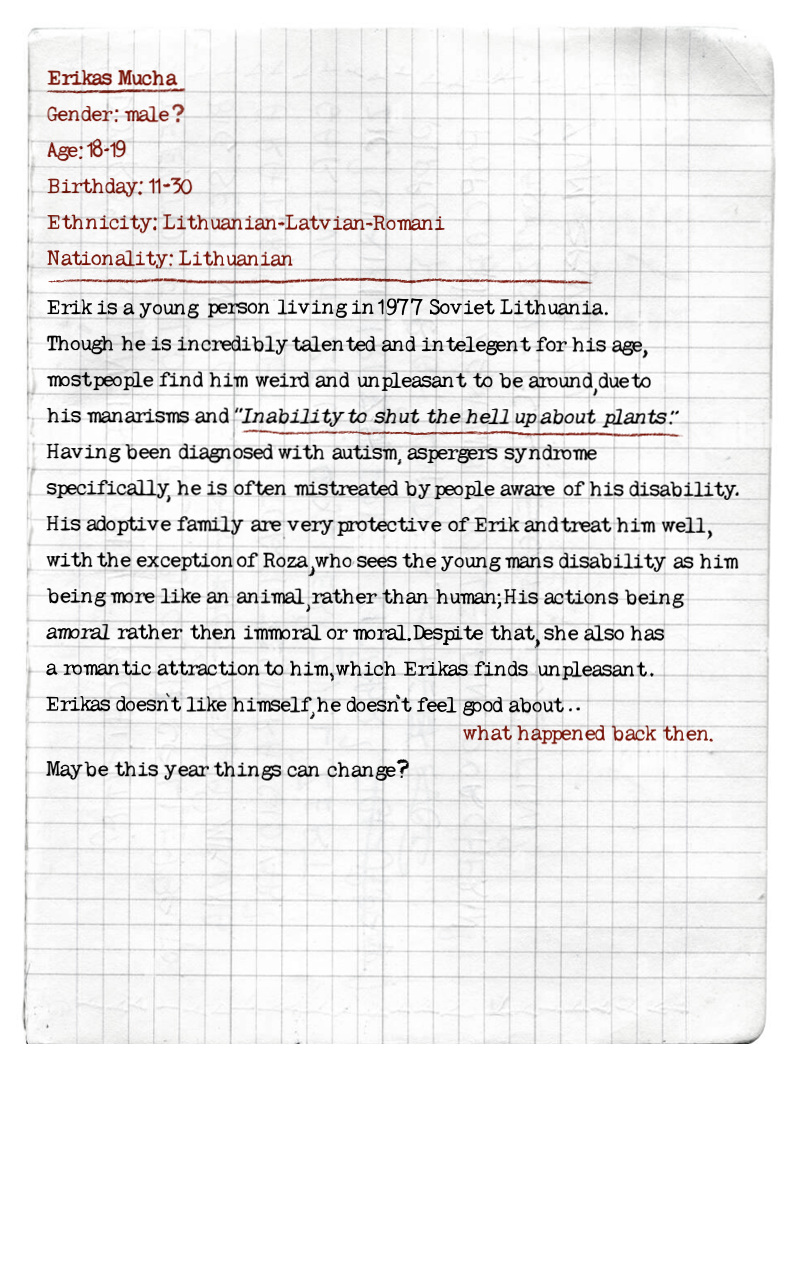 Erikas Mucha
Gender: male?
Age: 18-19
Birthday: 11-30
Ethnicity: Lithuanian-Latvian-Romani
Nationality: Lithuanian
Erik is a young person living in 1977 Soviet Lithuania.
Though he is incredibly talented and intelegent for his age,
most people find him weird and unpleasant to be around, due to
his manarisms and "Inability to shut the hell up about plants."
Having been diagnosed with autism, aspergers syndrome
specifically, he is often mistreated by people aware of his disability.
His adoptive family are very protective of Erik and treat him well,
with the exception of Roza, who sees the young mans disability as him
being more like an animal, rather than human; His actions being
amoral rather then immoral or moral. Despite that, she also has
a romantic attraction to him, which Erikas finds unpleasant.
Erikas doesn't like himself, he doesn't feel good about..
what happened back then.
Maybe this year things can change?